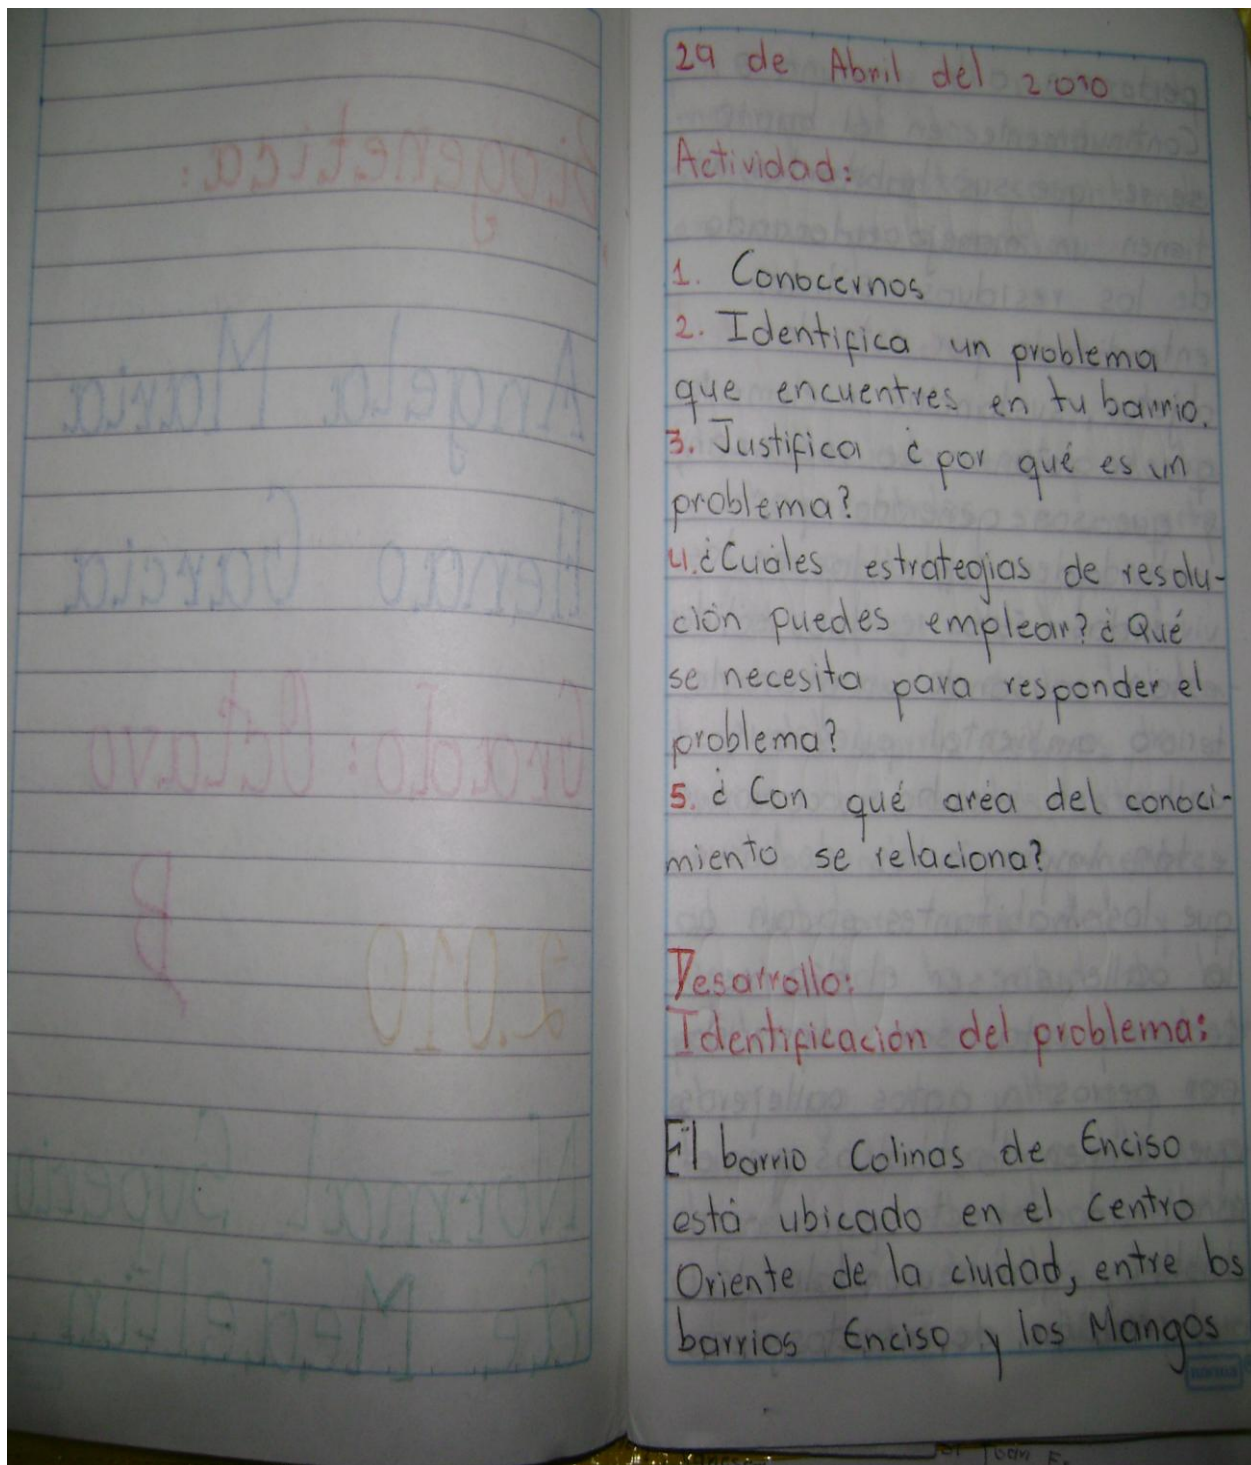 Biogenetica:
Angela Maria
Henao Garcia
Grado: Octavo
B
2.010
Normal Superio
de Medellin
29 de Abril del 2010
Actividad:
1. Conocernos
2. Identifica un problema
que encuentres en tu barrio.
3. Justifica ¿por qué es un
problema?
4.¿Cuáles estrategias de resolu-
ción puedes emplear? ¿Qué
se necesita para responder el
problema?
5. ¿Con qué aréa del conoci-
miento se relaciona?
Desarrollo:
Identificación del problema:
El barrio Colinas de Enciso
está ubicado en el Centro
Oriente de la ciudad, entre los
barrios Enciso y los Mangos